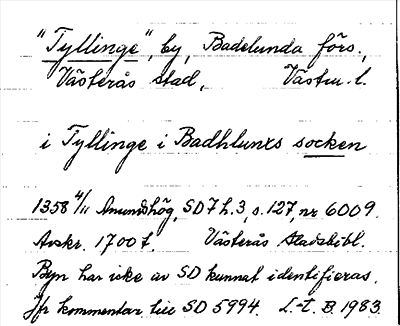 "Tyllinge", by, Badelunda förs.,
Västerås stad, Västm. l.
i Tyllinge i Badhlunxs socken
1358 4/11 Anundshög, SD 7 h.3, s. 127, nr 6009.
Avskr. 1700 t. Västerås Stadsbibl.
Byn har icke av SD kunnat identifieras.
Jfr kommentar till SD 5994. L.-E. B. 1983